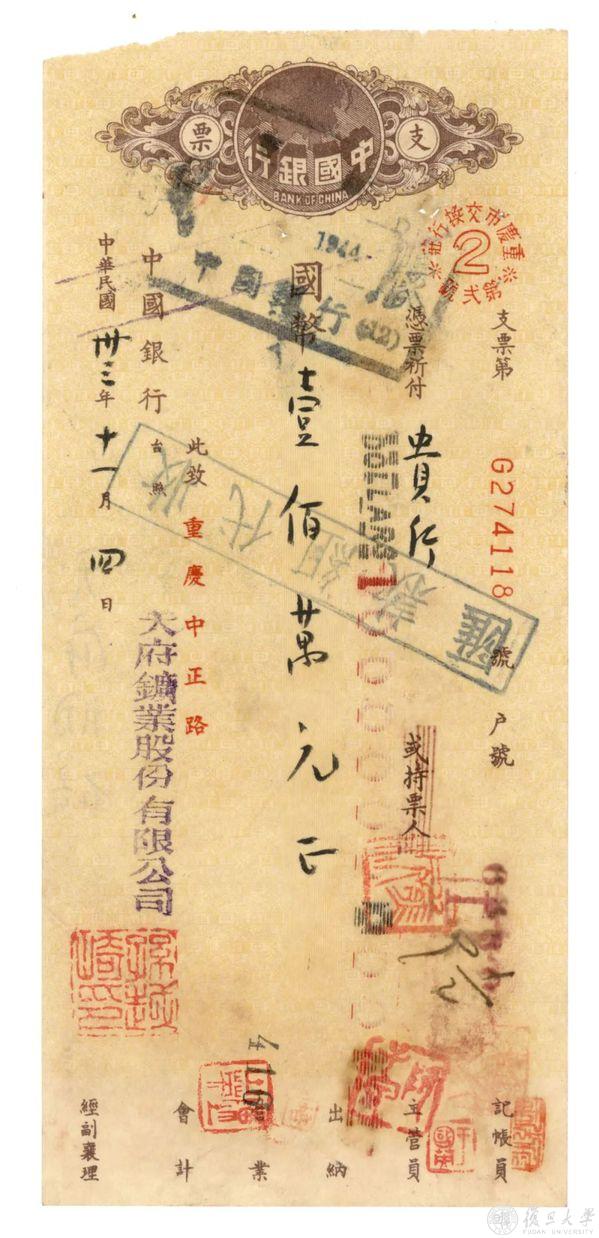 支 中國銀行 票
BANK OF CHINA
重慶市交換行莊
2
第弍號
1944
中國銀行
支票第 G274118 號 戶號
憑票祈付 貴行 或持票人
DOLLARS
國幣壹佰萬元正
匯款組代收
此致 重慶中正路
中國銀行 台照
天府鑛業股份有限公司
中華民國卅三年十一月四日
孫越崎印
記帳員
主管員
出納
營業
會計
經副襄理
復旦大學
FUDAN UNIVERSITY